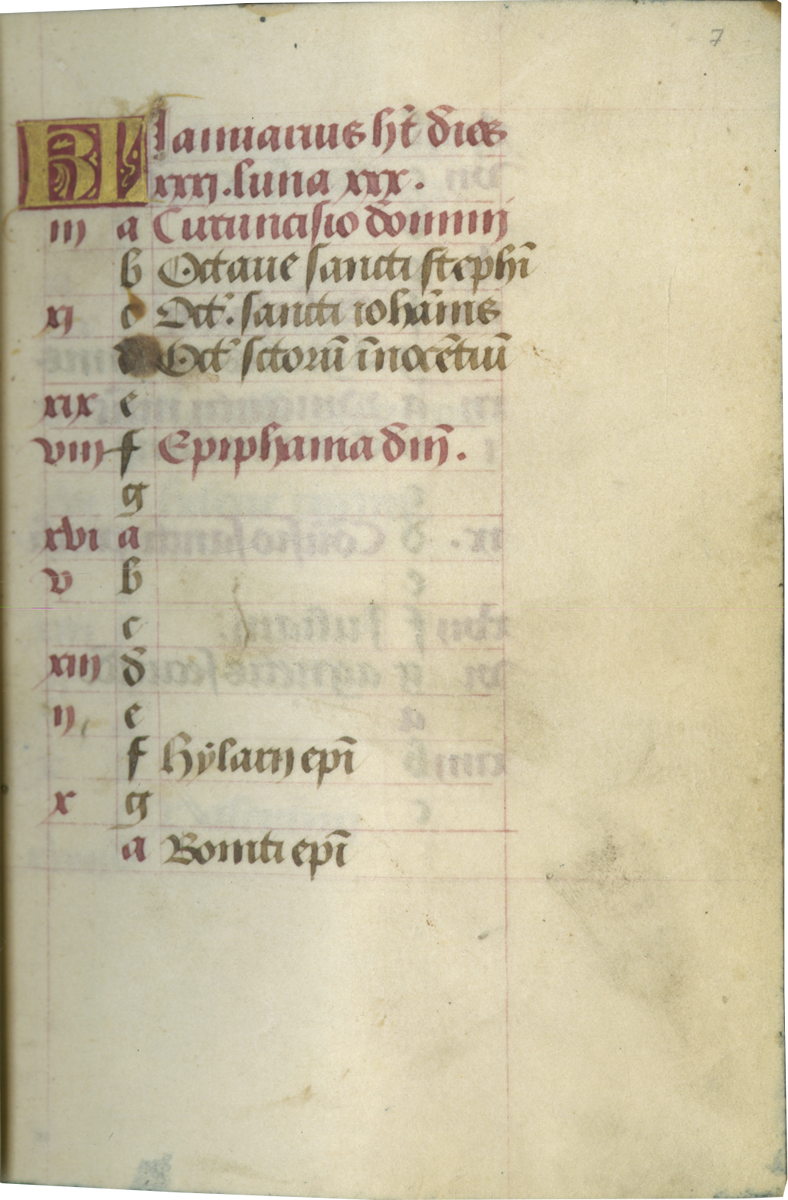 7
KL Ianuarius ht̄ dies
xxxi. luna xxx.
iii a Circuncisio domini
b Octaue sancti stephī
xi c Oct'. sancti iohānis
d Oct' sctorū īnocētiū
xix e
viii f Epiphania dn̄i.
g
xvi a
v b
c
xiii d
ii e
f Hylarij epī
x g
a Boniti epī